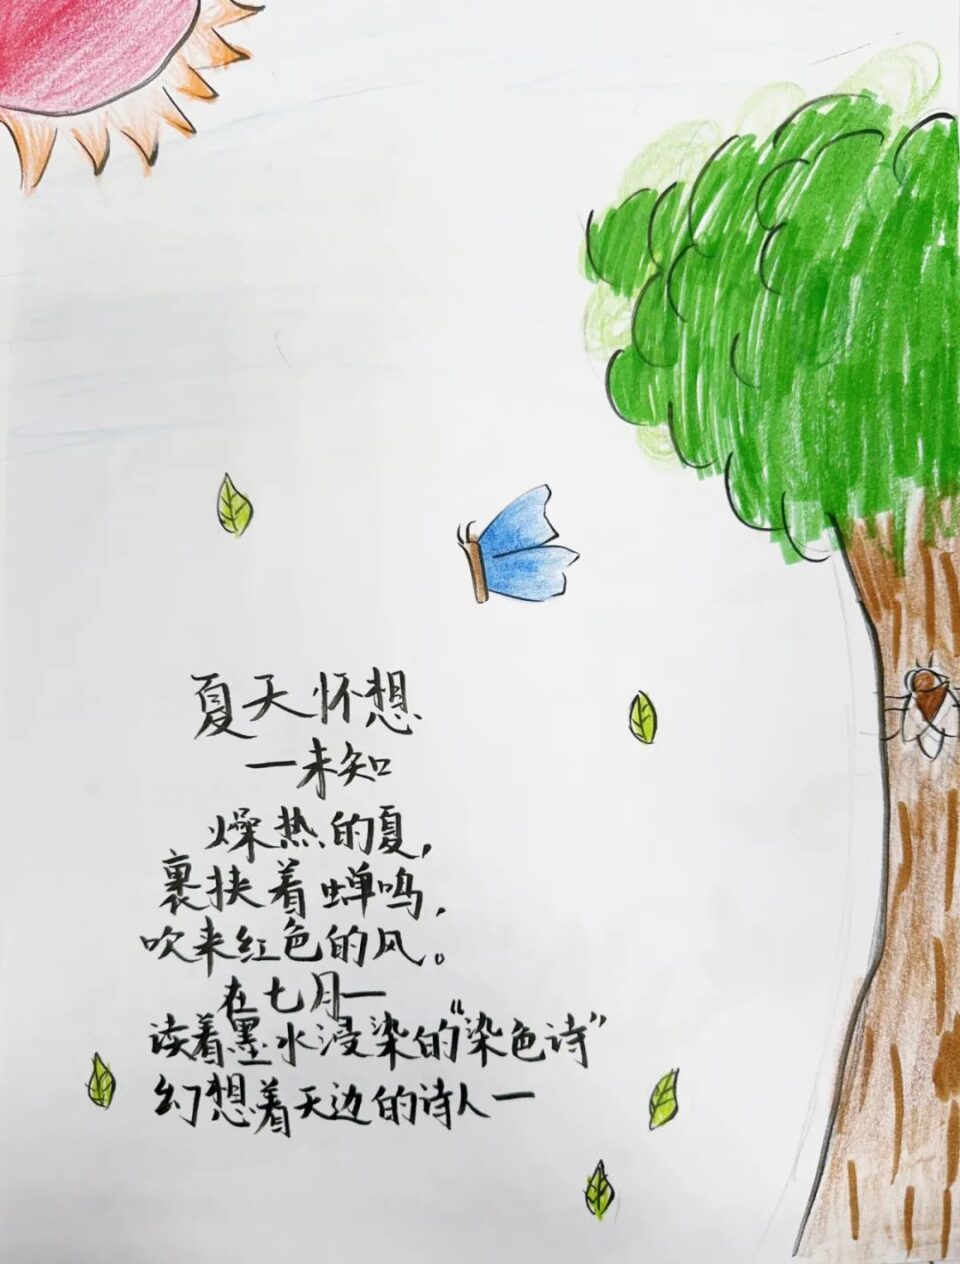 夏天怀想
—未知
燥热的夏，
裹挟着蝉鸣，
吹来红色的风。
在七月—
读着墨水浸染的“染色诗”
幻想着天边的诗人—